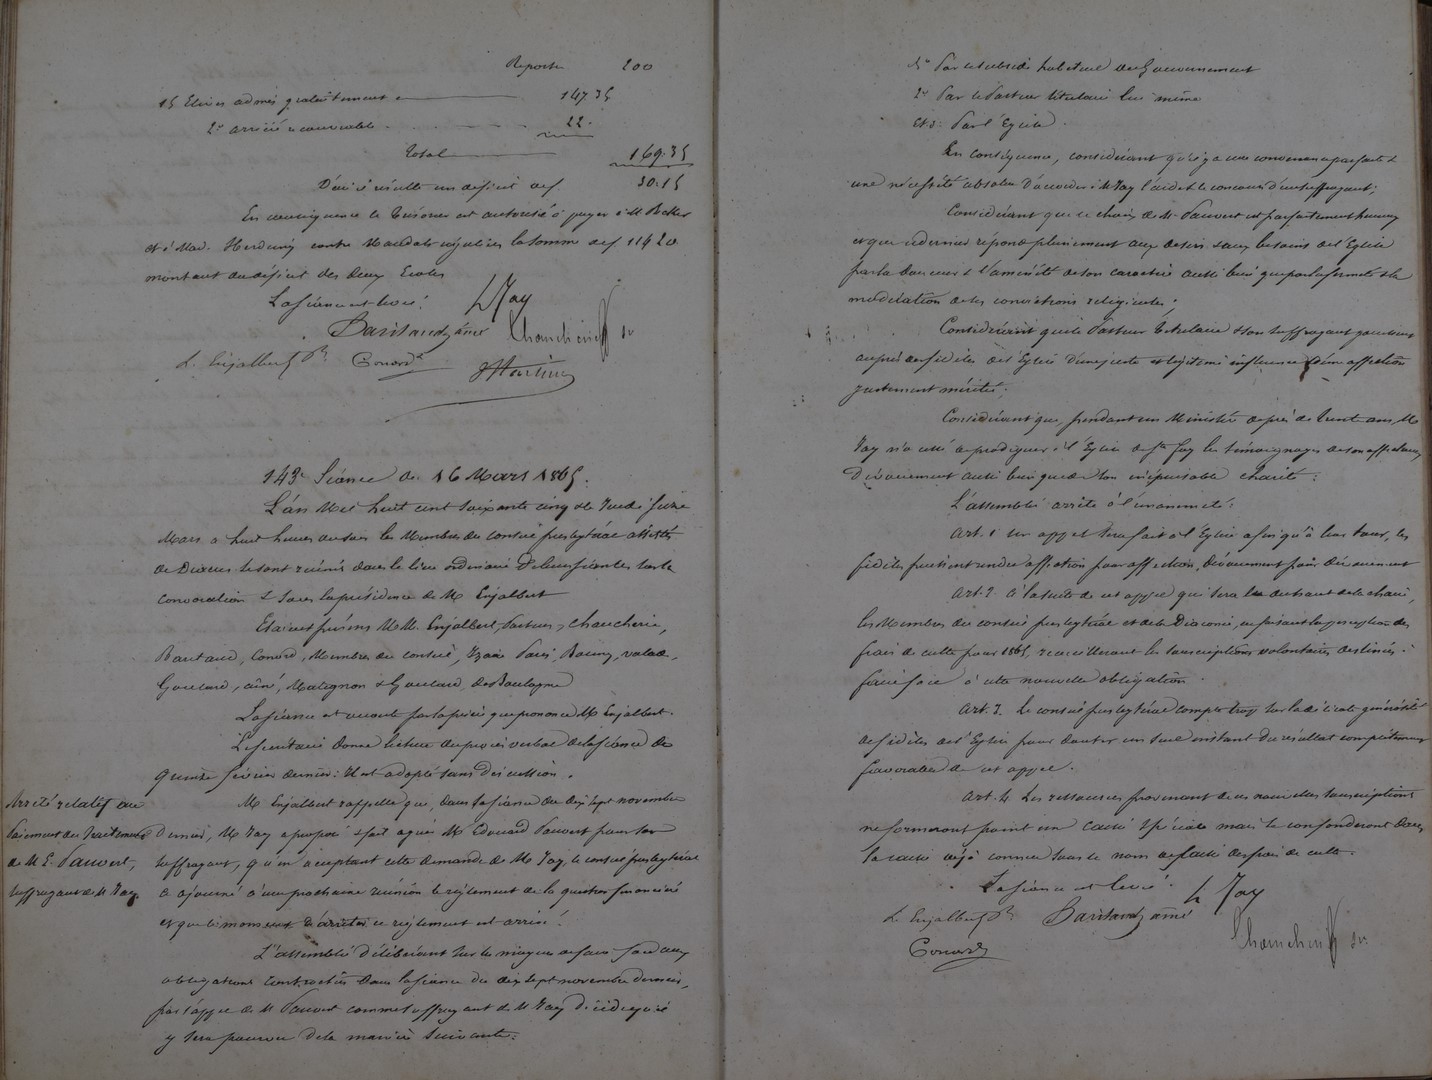 Reporté 200
15 Elèves admis gratuitement 147.35
2° arriéré recouvrable 22.
Total 169.35
D'où il résulte un déficit de f. 30.15
En conséquence le Trésorier est autorisé à payer à M.
et à Mad. contre Mandats réguliers la somme de f 114 20
montant du déficit des deux Ecoles
La séance est levée.
L Jay
Bastaud aîné
L. Enjalbert Pr
Conord
143e Séance du 16 Mars 1865.
L'an Mil huit cent soixante cinq et le Jeudi seize
Mars à huit heures du soir les Membres du conseil presbytéral assistés
de Diacres se sont réunis dans le lieu ordinaire de leurs séances sur la
convocation & sous la présidence de M. Enjalbert
Etaient présens MM. Enjalbert, Pasteur,
Conord, Membres du conseil,
Goulard, aîné, Matignon & Goulard, de Boulogne
La séance est ouverte par la prière que prononce M. Enjalbert.
Le secrétaire donne lecture du procès verbal de la séance du
quinze février dernier: Il est adopté sans discussion.
Arrêté relatif au
paiement du traitement
de M. E. Pauvert,
suffragant de M. Jay.
M. Enjalbert rappelle que, dans la séance du dix sept novembre
dernier, M. Jay a proposé & fait agréer M. Edouard Pauvert pour son
suffragant, qu'en acceptant cette demande de M. Jay, le conseil presbytéral
a ajourné à une prochaine réunion le règlement de la question financière
et que le moment d'arrêter ce règlement est arrivé.
L'assemblée délibérant sur les moyens de faire face aux
obligations contractées dans la séance du dix sept novembre dernier,
par l'appel de M. Pauvert comme suffragant de M. Jay décide qu'il
y sera pourvu de la manière suivante:
1° Par le subside habituel du Gouvernement
2° Par le Pasteur titulaire lui même
Et 3° Par l'Eglise.
En conséquence, considérant qu'il y a une convenance parfaite &
une nécessité absolue d'accorder à M. Jay l'aide et le concours d'un suffragant;
Considérant que le choix de M. Pauvert est parfaitement heureux
et que ce dernier répond pleinement aux désirs & aux besoins de l'Eglise
par la douceur & l'aménité de son caractère aussi bien que par la fermeté & la
modération de ses convictions religieuses;
Considérant que le Pasteur titulaire & son suffragant jouissent
auprès des fidèles de l'Eglise d'une juste et légitime influence & d'une affection
justement méritée;
Considérant que, pendant un Ministère de près de trente ans, M.
Jay n'a cessé de prodiguer à l'Eglise de Ste Foy les témoignages de son affectueux
Dévouement aussi bien que de son inépuisable charité:
L'assemblée arrête à l'unanimité:
Art. 1 Un appel sera fait à l'Eglise afin qu'à leur tour, les
fidèles puissent rendre affection pour affection, dévouement pour dévouement
Art. 2. A la suite de cet appel qui sera lu du haut de la chaire,
les Membres du conseil presbytéral et de la Diaconie, en faisant la perception des
frais de culte pour 1865, recueilleront les souscriptions volontaires destinées à
faire face à cette nouvelle obligation.
Art. 3. Le conseil presbytéral compte trop sur la délicate générosité
des fidèles de l'Eglise pour douter un seul instant du résultat complètement
favorable de cet appel.
Art. 4 Les ressources provenant de ces nouvelles souscriptions
ne formeront point une caisse spéciale mais se confondront dans
la caisse déjà connue sous le nom de caisse des frais de culte.
La séance est levée.
L Jay
L. Enjalbert Pr
Bastaud aîné
Conord